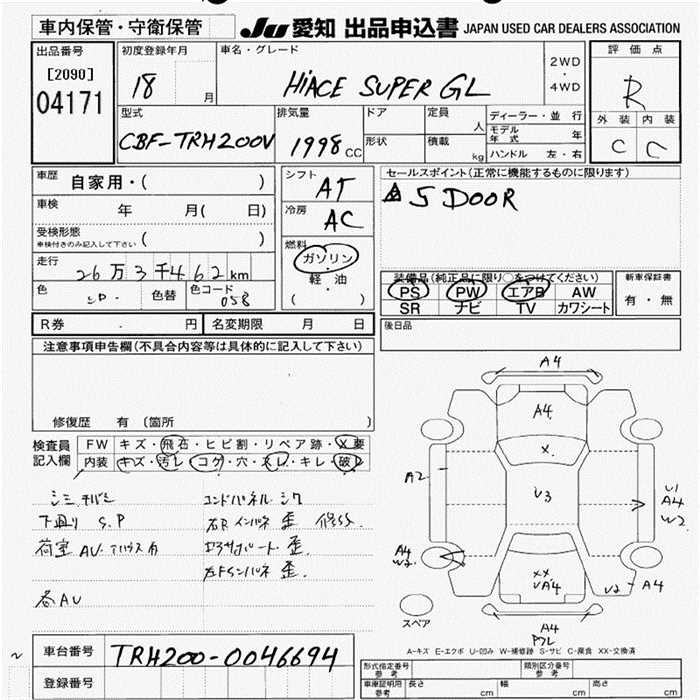 車内保管・守衛保管
JU 愛知 出品申込書 JAPAN USED CAR DEALERS ASSOCIATION
出品番号
[2090]
04171
初度登録年月
18 月
車名・グレード
HIACE SUPER GL
2WD
・
4WD
評価点
R
外装 内装
C C
型式
CBF-TRH200V
排気量
1998 CC
ドア
形状
定員
人
積載
kg
ディーラー・並行
モデル年式 年
ハンドル 左・右
車歴 自家用・( )
車検 年 月( 日)
受検形態
車検付きのみ記入して下さい ( )
走行 26万3千462km
色 シロ・ 色替 色コード 058
シフト AT
冷房 AC
燃料
ガソリン
・
軽油
( )
セールスポイント(正常に機能するものに限ります)
5 DOOR
装備品(純正品に限り○をつけてください)
PS PW エアB AW
SR ナビ TV カワシート
新車保証書
有・無
後日品
R券 . 円 名変期限 月 日
注意事項申告欄(不具合内容等は具体的に記入して下さい)
修復歴 有 〔箇所 〕
検査員
記入欄
FW キズ・飛石・ヒビ割・リペア跡・X要
内装 キズ・汚レ・コゲ・穴・スレ・キレ・破レ
下廻り S.P
荷室 AV. 有
右Rインパネ 歪
歪.
左Rインパネ 歪.
各AU
A4
A4
X.
A2
U3
U1
A4
W2
A4
W2
XX
UA4
U2 A4
スペア
A4
A-キズ E-エクボ U-凹み W-補修跡 S-サビ C-腐食 XX-交換済
車台番号 TRH200-0046694
登録番号
形式指定番号
参考
類別区分番号
参考
車庫証明用
参考
長さ cm
幅 cm
高さ cm